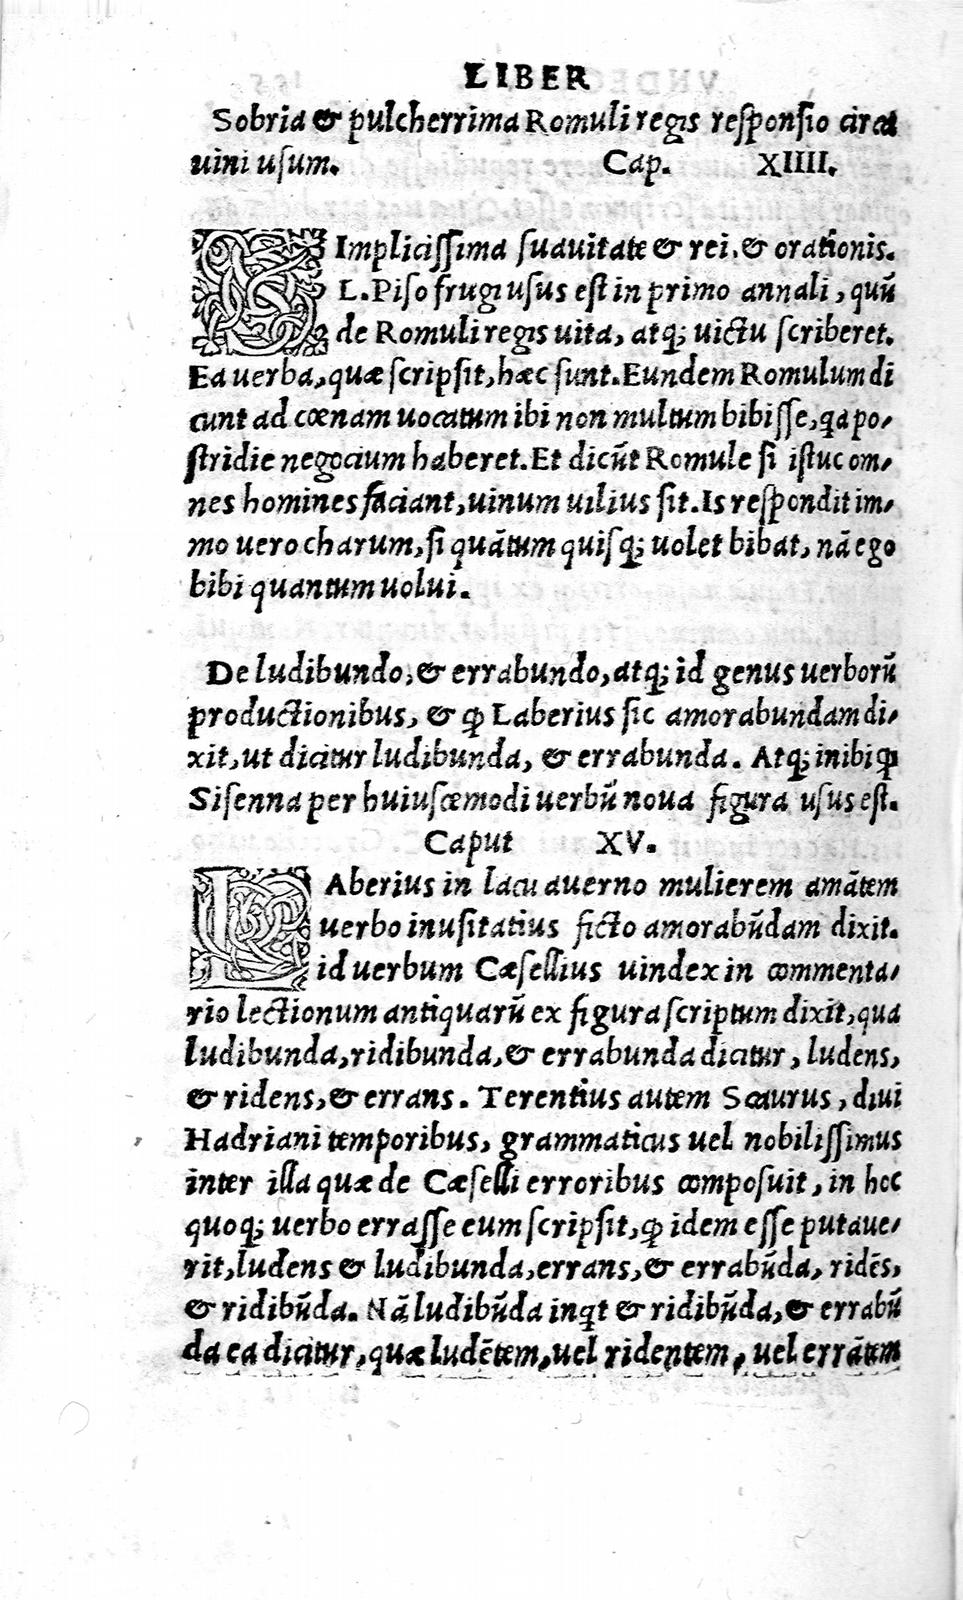 LIBER
Sobria & pulcherrima Romuli regis responsio circa
uini usum. Cap. XIIII.
SImplicissima suauitate & rei, & orationis.
L. Piso frugi usus est in primo annali, quũ
de Romuli regis uita, atq; uictu scriberet.
Ea uerba, quæ scripsit, hæc sunt. Eundem Romulum di
cunt ad cœnam uocatum ibi non multum bibisse, qa po-
stridie negocium haberet. Et dicũt Romule si istuc om-
nes homines faciant, uinum uilius sit. Is respondit im-
mo uero charum, si quãtum quisq; uolet bibat, nã ego
bibi quantum uolui.
De ludibundo, & errabundo, atq; id genus uerborũ
productionibus, & ꝙ Laberius sic amorabundam di-
xit, ut dicitur ludibunda, & errabunda. Atq; inibi ꝙ
Sisenna per huiuscemodi uerbũ noua figura usus est.
Caput XV.
LAberius in lacu auerno mulierem amãtem
uerbo inusitatius ficto amorabũdam dixit.
id uerbum Cæsellius uindex in commenta-
rio lectionum antiquarũ ex figura scriptum dixit, qua
ludibunda, ridibunda, & errabunda dicitur, ludens,
& ridens, & errans. Terentius autem Scaurus, diui
Hadriani temporibus, grammaticus uel nobilissimus
inter illa quæ de Cæselli erroribus composuit, in hoc
quoq; uerbo errasse eum scripsit, ꝙ idem esse putaue-
rit, ludens & ludibunda, errans, & errabũda, ridẽs,
& ridibũda. Nã ludibũda inqt & ridibũda, & errabũ
da ea dicitur, quæ ludẽtem, uel ridentem, uel errãtem